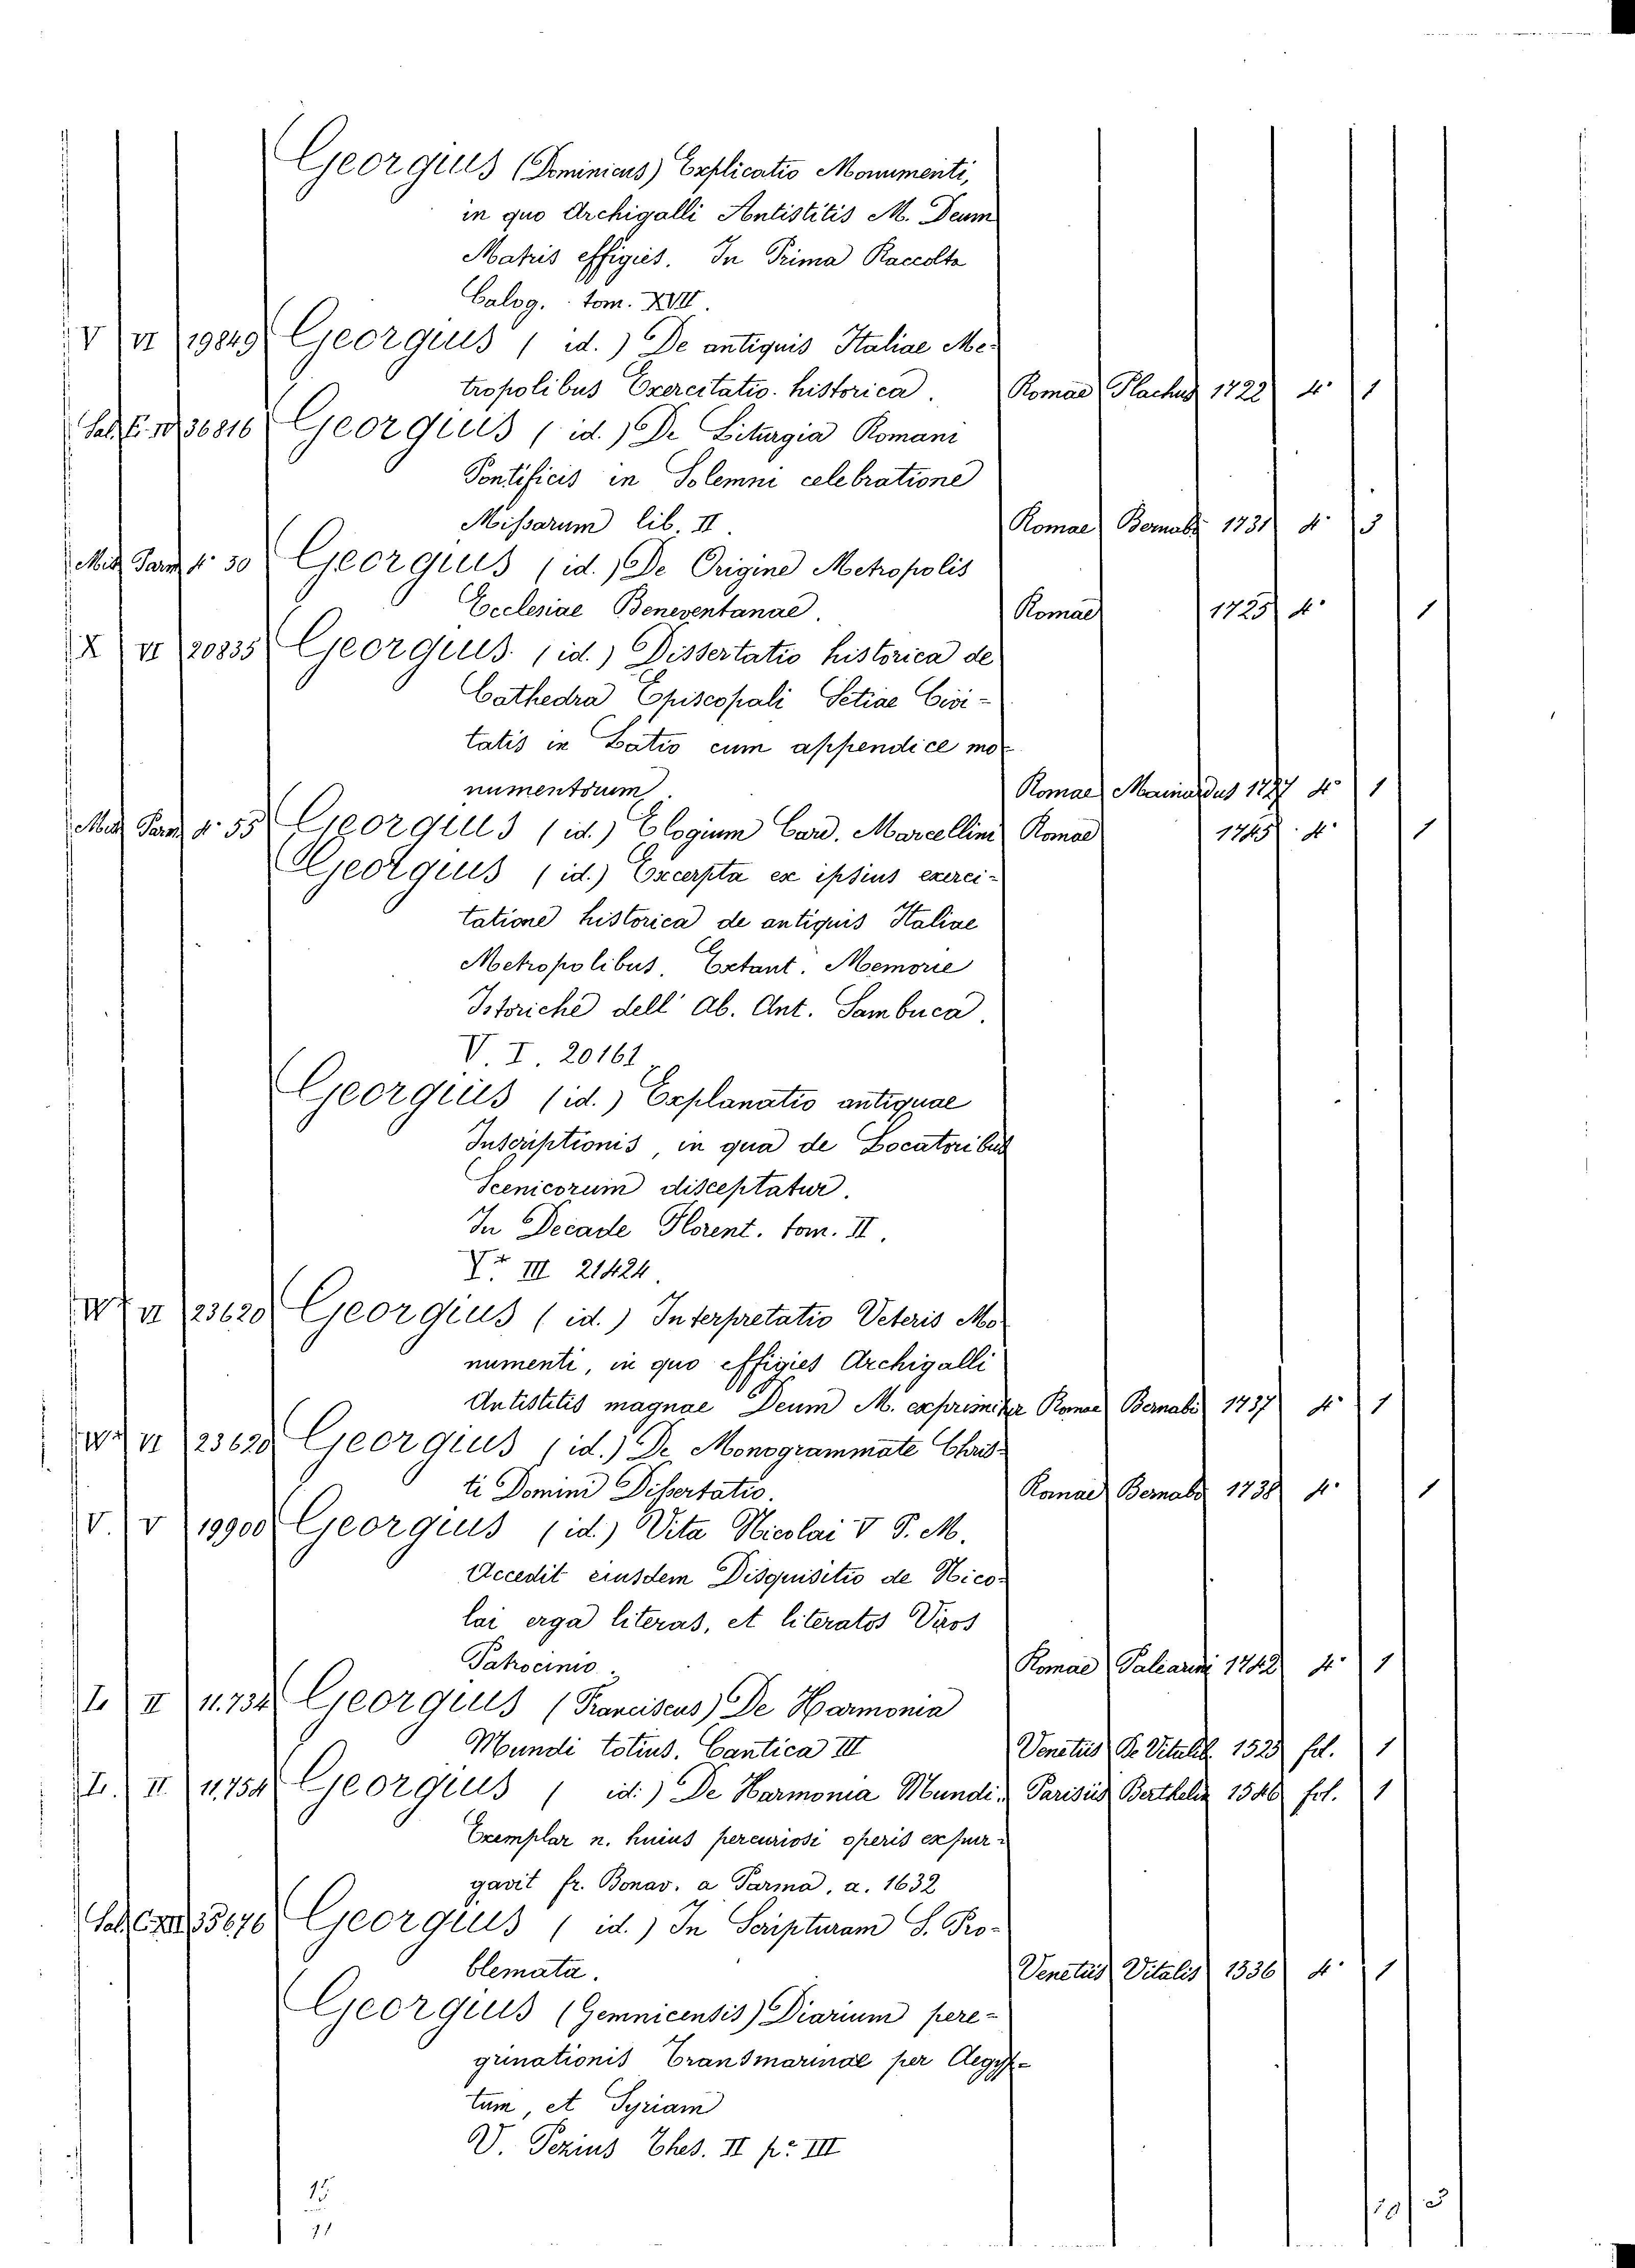 Georgius (Dominicus) Explicatio Monumenti,
in quo Archigalli Antistitis M. Deum
Matris effigies. In Prima Raccolta
Calog. tom. XVII.
V VI 19849 Georgius ( id. ) De antiquis Italiae Me-
tropolibus Exercitatio historica. Romae Plachus 1722 4° 1
Sal. E. IV 36816 Georgius ( id. ) De Liturgia Romani
Pontificis in Solemni celebratione
Missarum lib. II. Romae Bernabò 1731 4° 3
Misc. Parm. 4° 30 Georgius ( id. ) De Origine Metropolis
Ecclesiae Beneventanae. Romae 1725 4° 1
X VI 20835 Georgius ( id. ) Dissertatio historica de
Cathedra Episcopali Setiae Civi-
tatis in Latio cum appendice mo-
numentorum. Romae Mainardus 1727 4° 1
Misc. Parm. 4° 55 Georgius ( id. ) Elogium Card. Marcellini Romae 1745 4° 1
Georgius ( id. ) Excerpta ex ipsius exerci-
tatione historica de antiquis Italiae
Metropolibus. Extant. Memorie
Istoriche dell' Ab. Ant. Sambuca.
V. I. 20161
Georgius ( id. ) Explanatio antiquae
Inscriptionis, in qua de Locatoribus
Scenicorum disceptatur.
In Decade Florent. tom. II.
III 21424
VI 23620 Georgius ( id. ) Interpretatio Veteris Mo-
numenti, in quo effigies Archigalli
Antistitis magnae Deum M. exprimitur Romae Bernabò 1737 4° 1
VI 23620 Georgius ( id. ) De Monogrammate Chris-
ti Domini Dissertatio. Romae Bernabò 1738 4° 1
V. V 19900 Georgius ( id. ) Vita Nicolai V P. M.
Accedit eiusdem Disquisitio de Nico-
lai erga literas, et literatos Viros
Patrocinio. Romae Palearini 1742 4° 1
L II 11.734 Georgius (Franciscus) De Harmonia
Mundi totius. Cantica III Venetiis De Vitalib. 1525 fol. 1
L. II 11.754 Georgius ( id. ) De Harmonia Mundi. Parisiis Berthelin 1546 fol. 1
Exemplar n. huius percuriosi operis expur-
gavit fr. Bonav. a Parma, a. 1632
Sal. C. XII 35676 Georgius ( id. ) In Scripturam S. Pro-
blemata. Venetiis Vitalis 1536 4° 1
Georgius (Gemnicensis) Diarium pere-
grinationis Transmarinae per Aegyp-
tum, et Syriam
V. Pezius Thes. II p. III
15
11